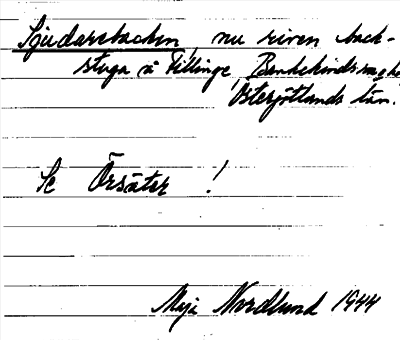 Sjudarebacken, nu riven back-
stuga å Fillinge, Bankekinds
Östergötlands län.
Se Örsäter!
Maja Nordlund 1944